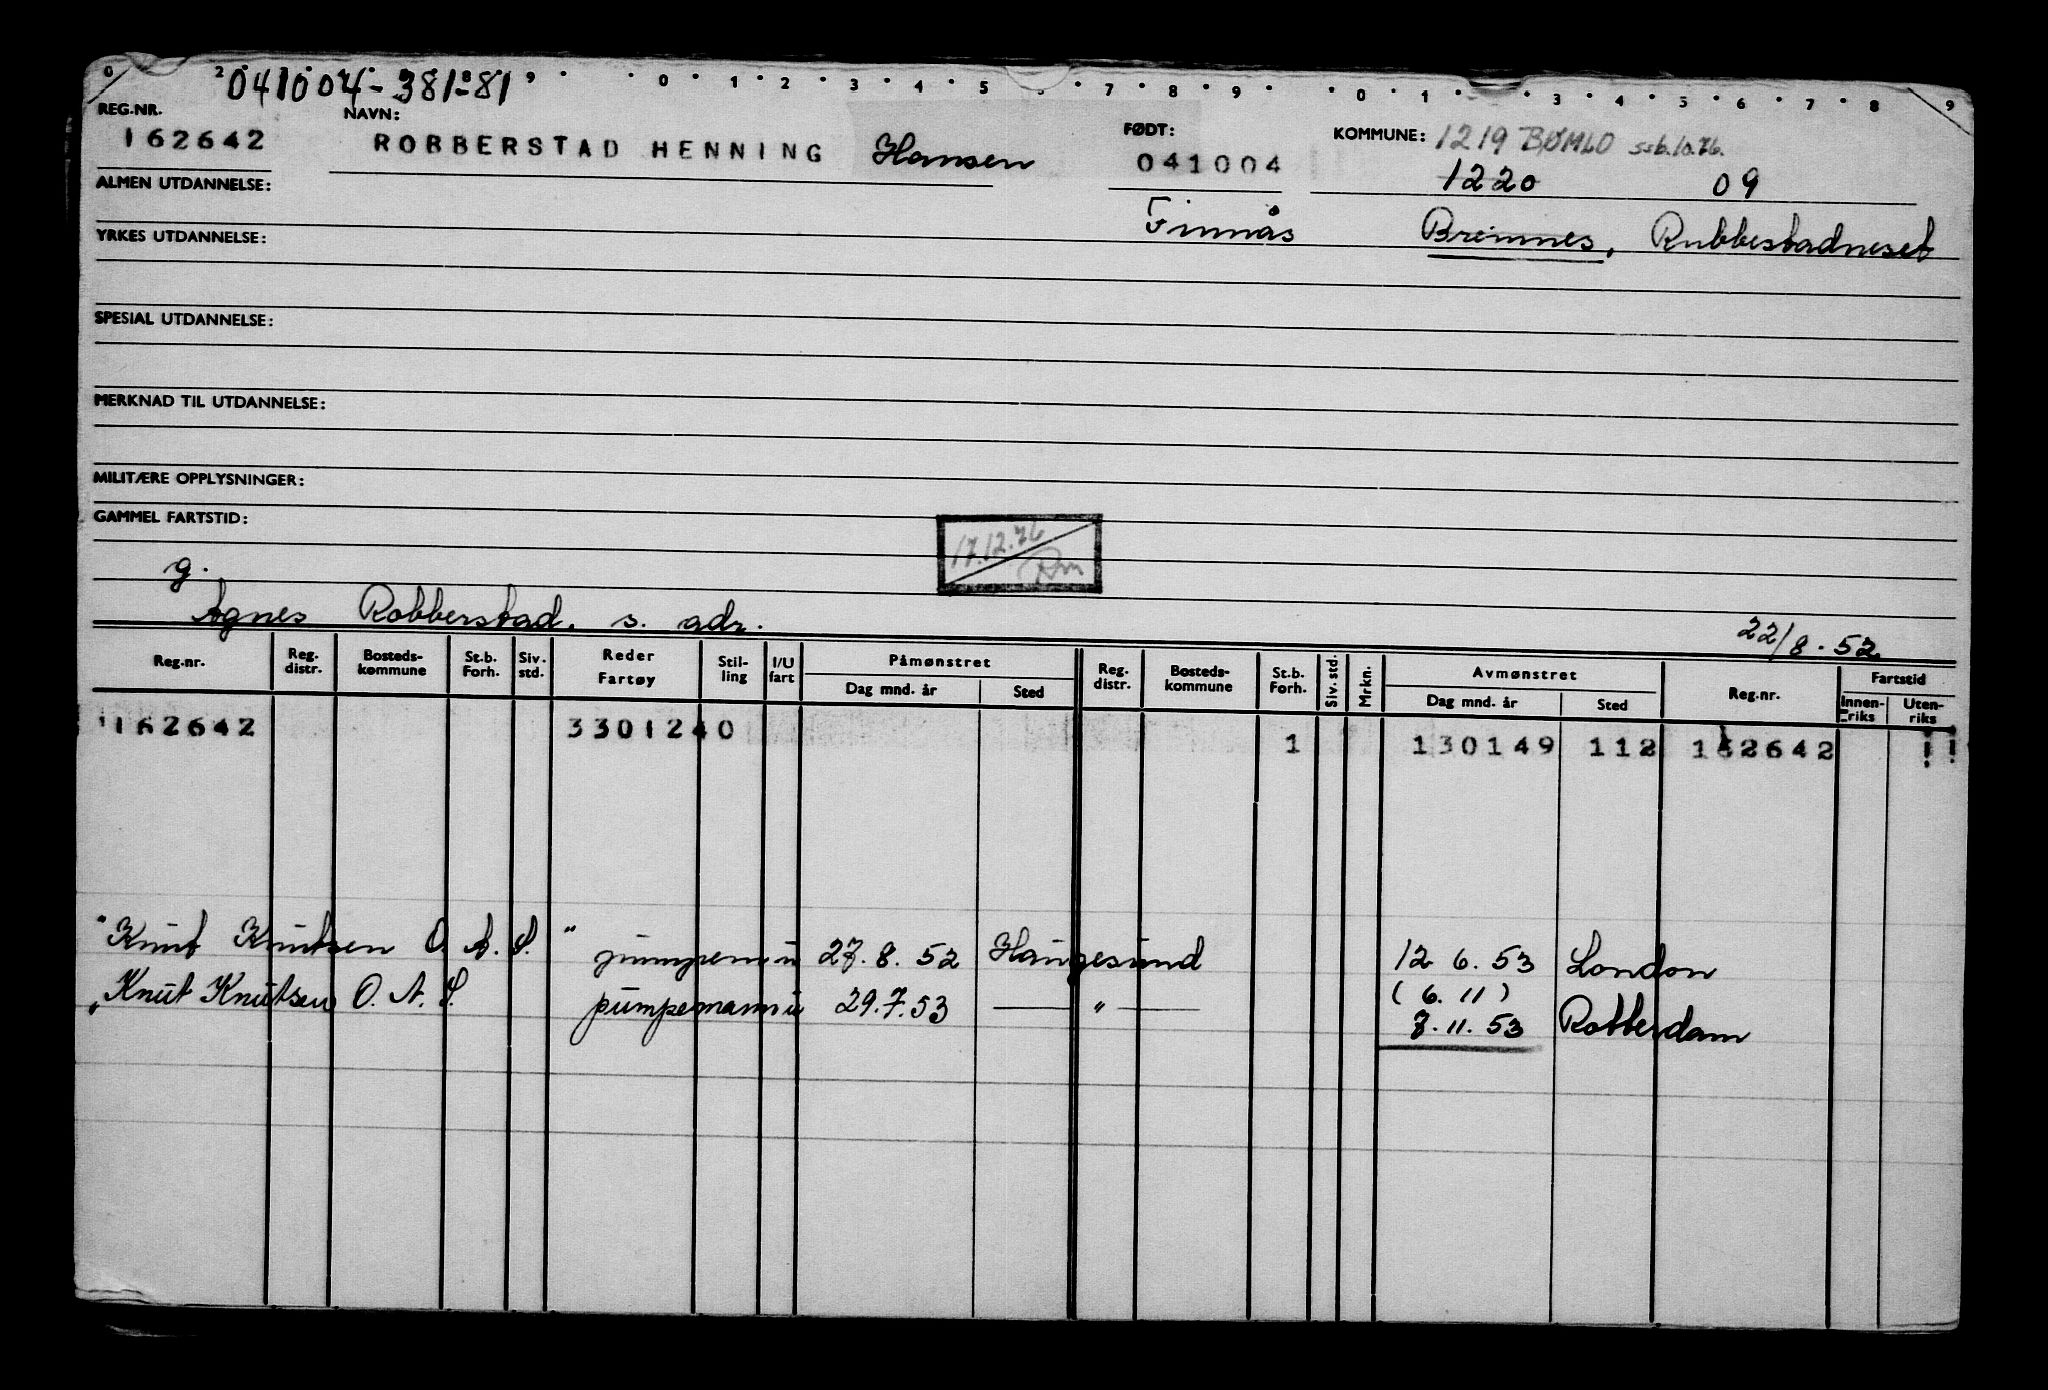 041004-38181
REG.NR. NAVN: FØDT: KOMMUNE: 1219 BØMLO ssb.10.76.
162642 ROBBERSTAD HENNING Hansen 041004 1220 09
ALMEN UTDANNELSE:
Finnås Bremnes, Rubbestadneset
YRKES UTDANNELSE:
SPESIAL UTDANNELSE:
MERKNAD TIL UTDANNELSE:
MILITÆRE OPPLYSNINGER:
GAMMEL FARTSTID:
17.12.76
g.
Agnes Robberstad. s. adr.
22/8.52
Reg.nr. Reg. distr. Bosteds- kommune St.b. Forh. Siv. std. Reder Fartøy Stil- ling I/U fart Påmønstret Dag mnd. år Sted Reg. distr. Bosteds- kommune St.b. Forh. Siv. std. Mrkn. Avmønstret Dag mnd. år Sted Reg.nr. Fartstid Innen- riks Uten- riks
162642 3301240 1 130149 112 162642
"Knut Knutsen O. A. S." pumpemann 27.8.52 Haugesund 12 6.53 London
"Knut Knutsen O. A. S. pumpemann 29.7.53 — " — (6.11)
7.11.53 Rotterdam